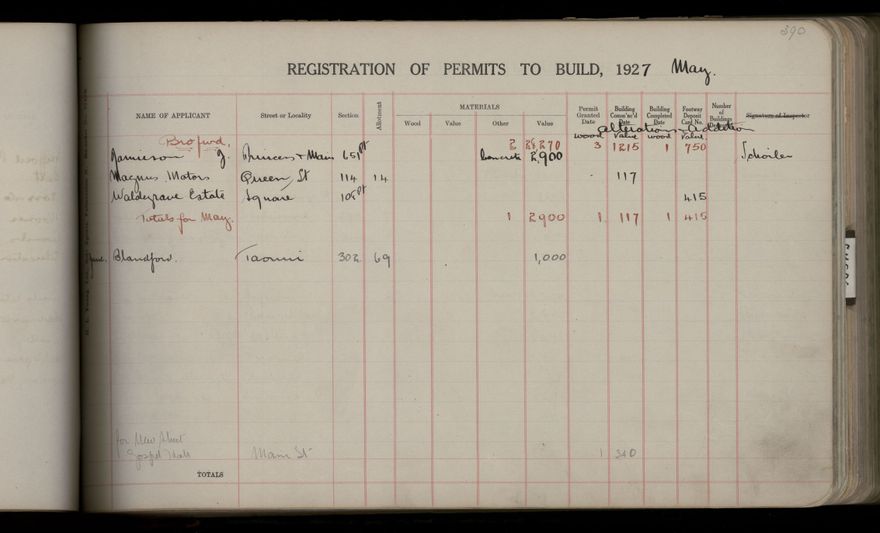 390
REGISTRATION OF PERMITS TO BUILD, 1927 May.
NAME OF APPLICANT Street or Locality Section Allotment MATERIALS Wood Value Other Value Permit Granted Date Building Commc'd Date Building Completed Date Footway Deposit Card No. Number of Buildings Signature of Inspector
alterations & addition
wood value wood value
Bro fwd. 2 28,270 3 1215 1 750
Jamieson J. Princess & Main 651 pt Concrete 2,900
Magnus Motors Queen St 114 14 117
Waldegrave Estate Square 105 pt 415
Totals for May. 1 2900 1 117 1 415
June. Blandford. Taonui 302 69 1,000
for New
Gospel Main St 1 350
TOTALS